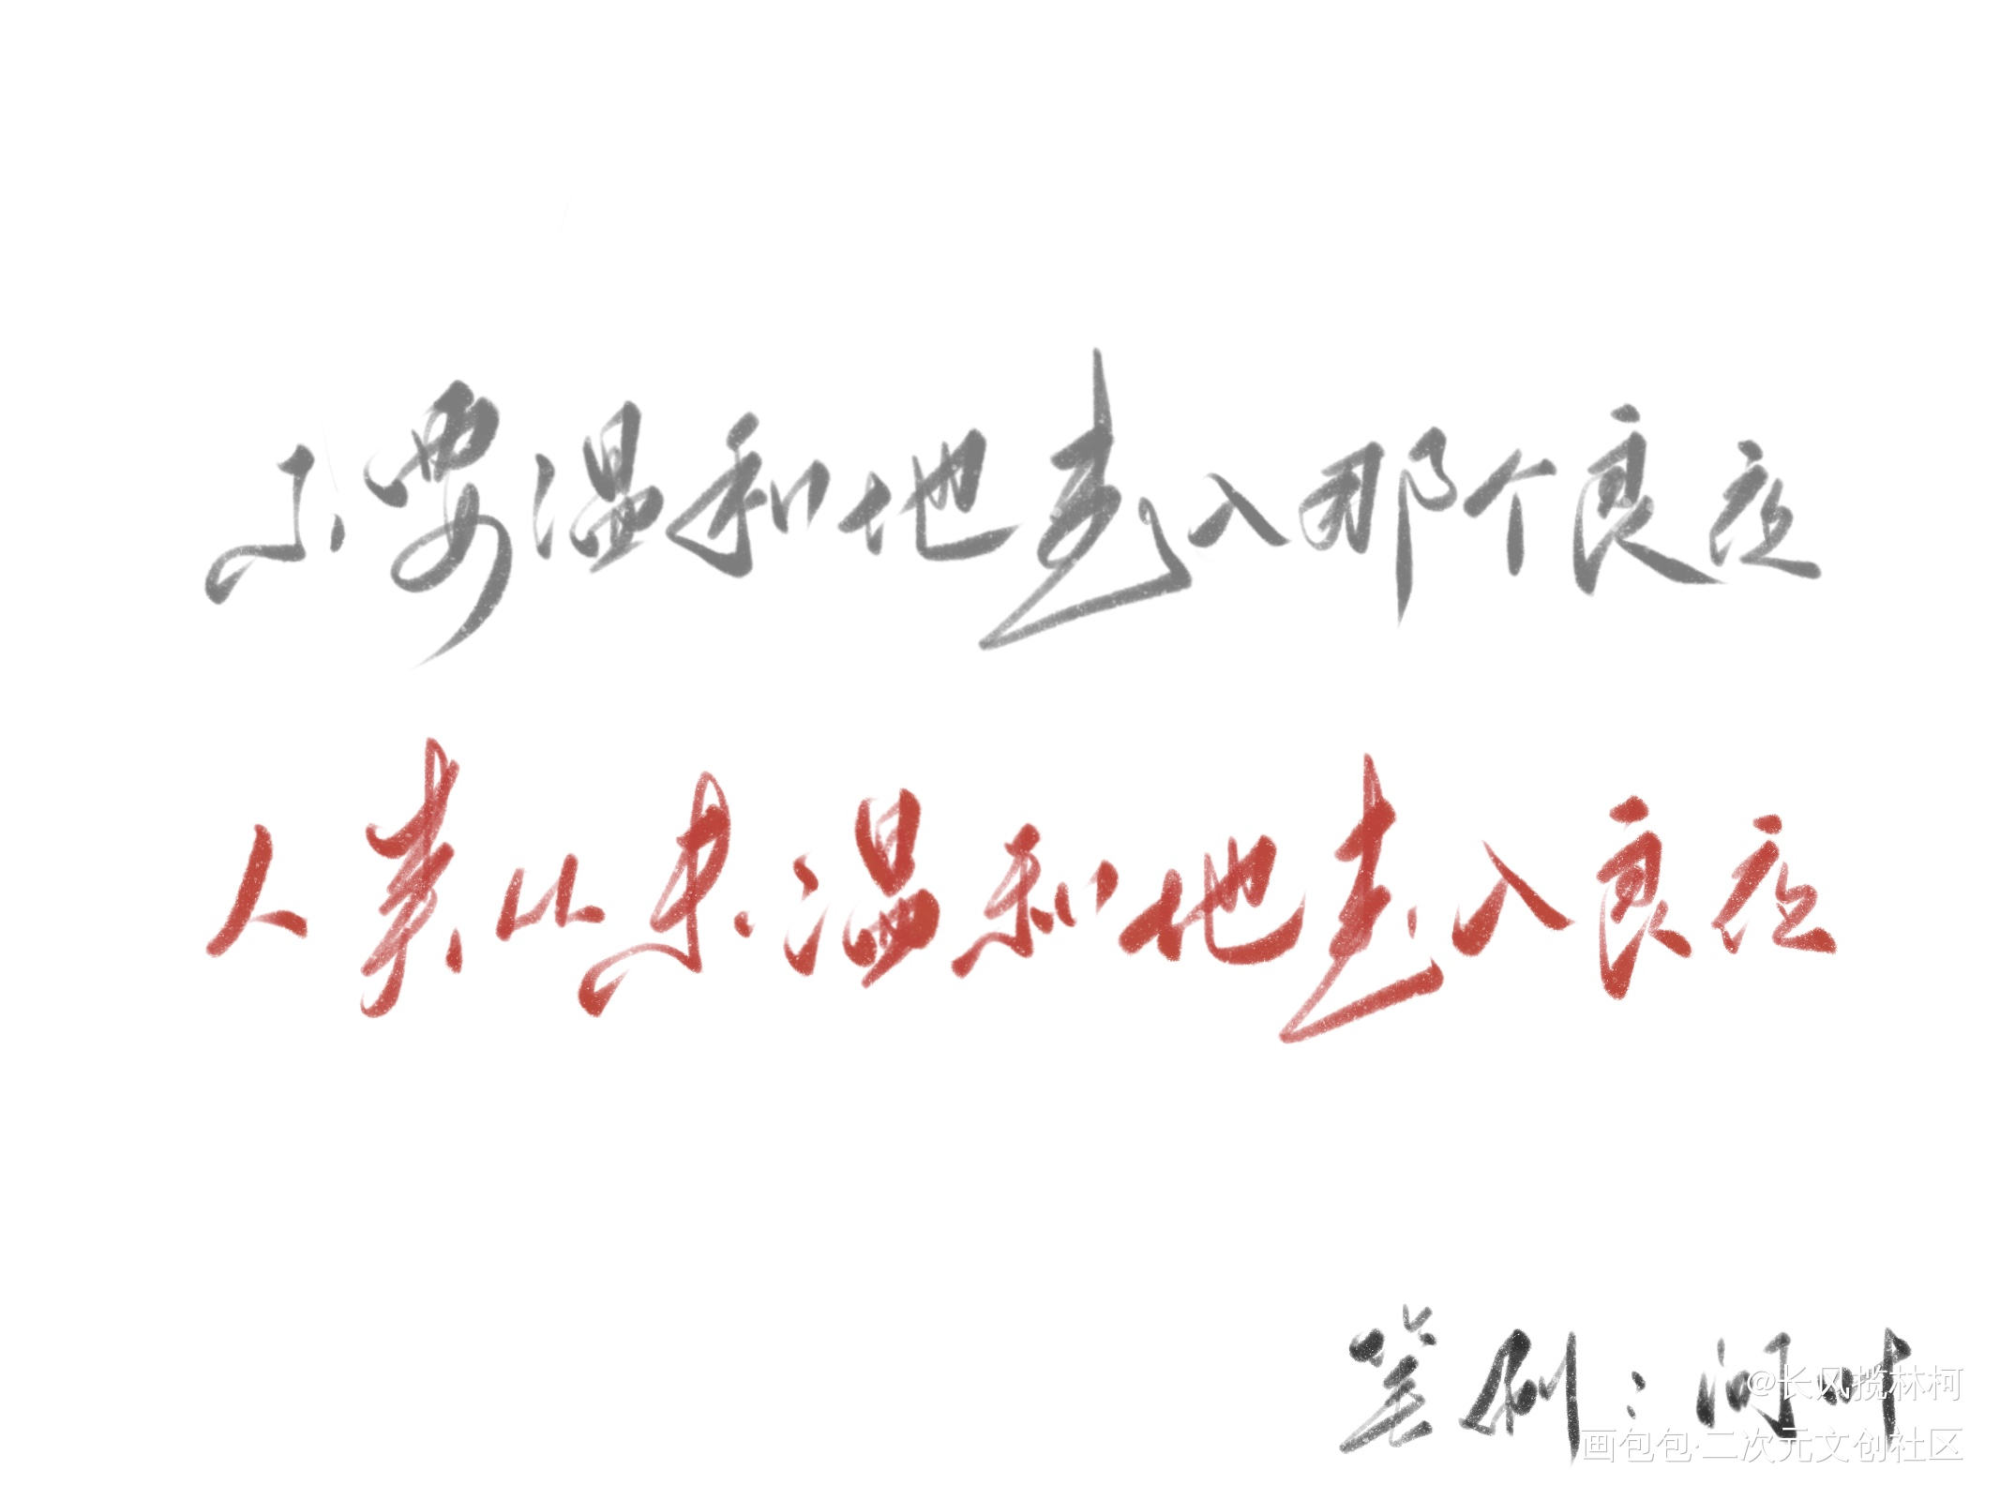 不要温和地走入那个良夜
人类从未温和地走入良夜
笔刷：河叶
@长风揽林柯
画包包·二次元文创社区